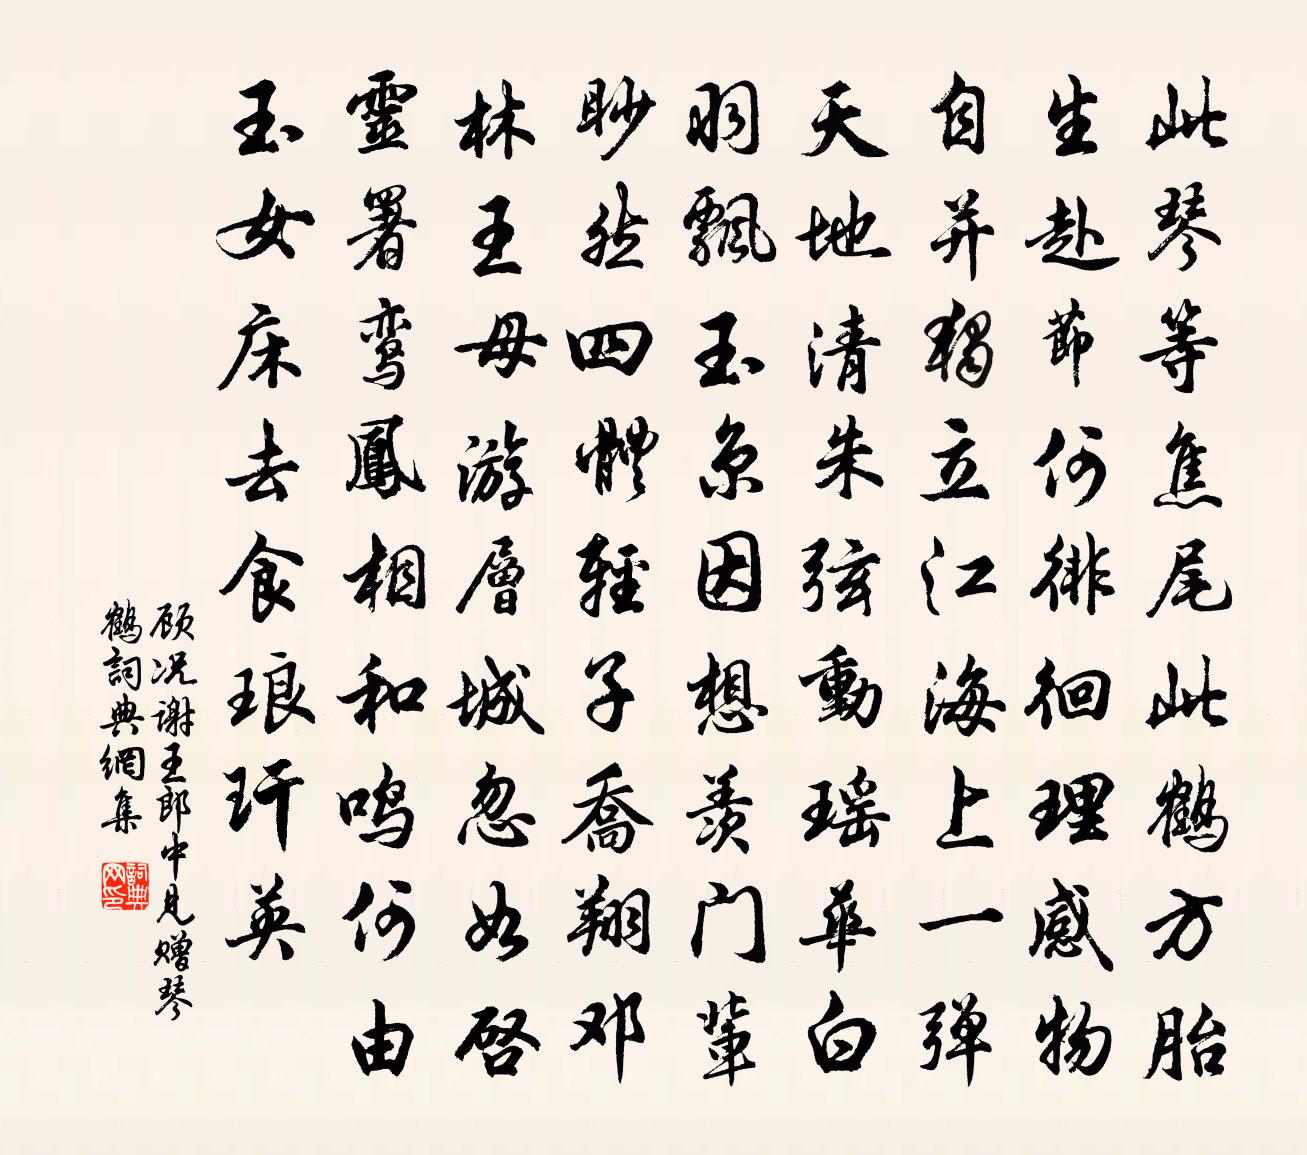 此琴等焦尾此鹤方胎
生赴節何徘徊理感物
自并獨立江海上一弹
天地清朱弦動瑶華白
羽飄玉京因想羡门輩
眇然四體輕子喬翔邓
林王母游層城忽如啓
靈署鸾鳳相和鸣何由
玉女床去食琅玕英
顾况谢王郎中见赠琴
鶴詞典網集
詞典网印